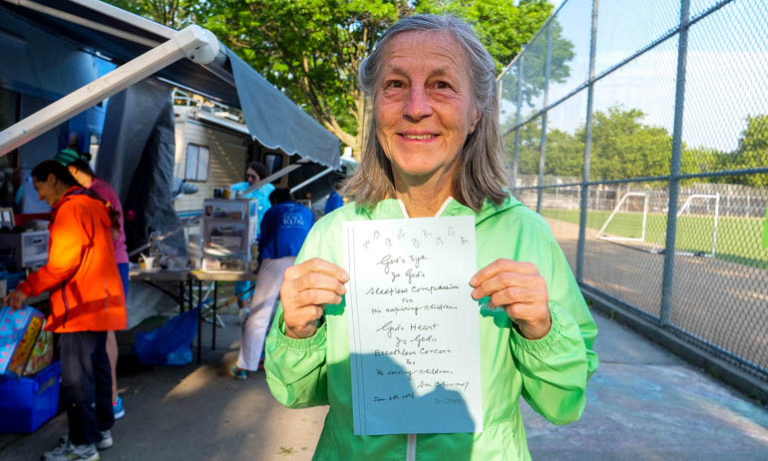 God's Eye
Is God's
Sleepless Compassion
For
His aspiring children.
God's Heart
Is God's
Breathless Concern
For
His serving children.
Sri Chinmoy
Sri Chinmoy
RUN